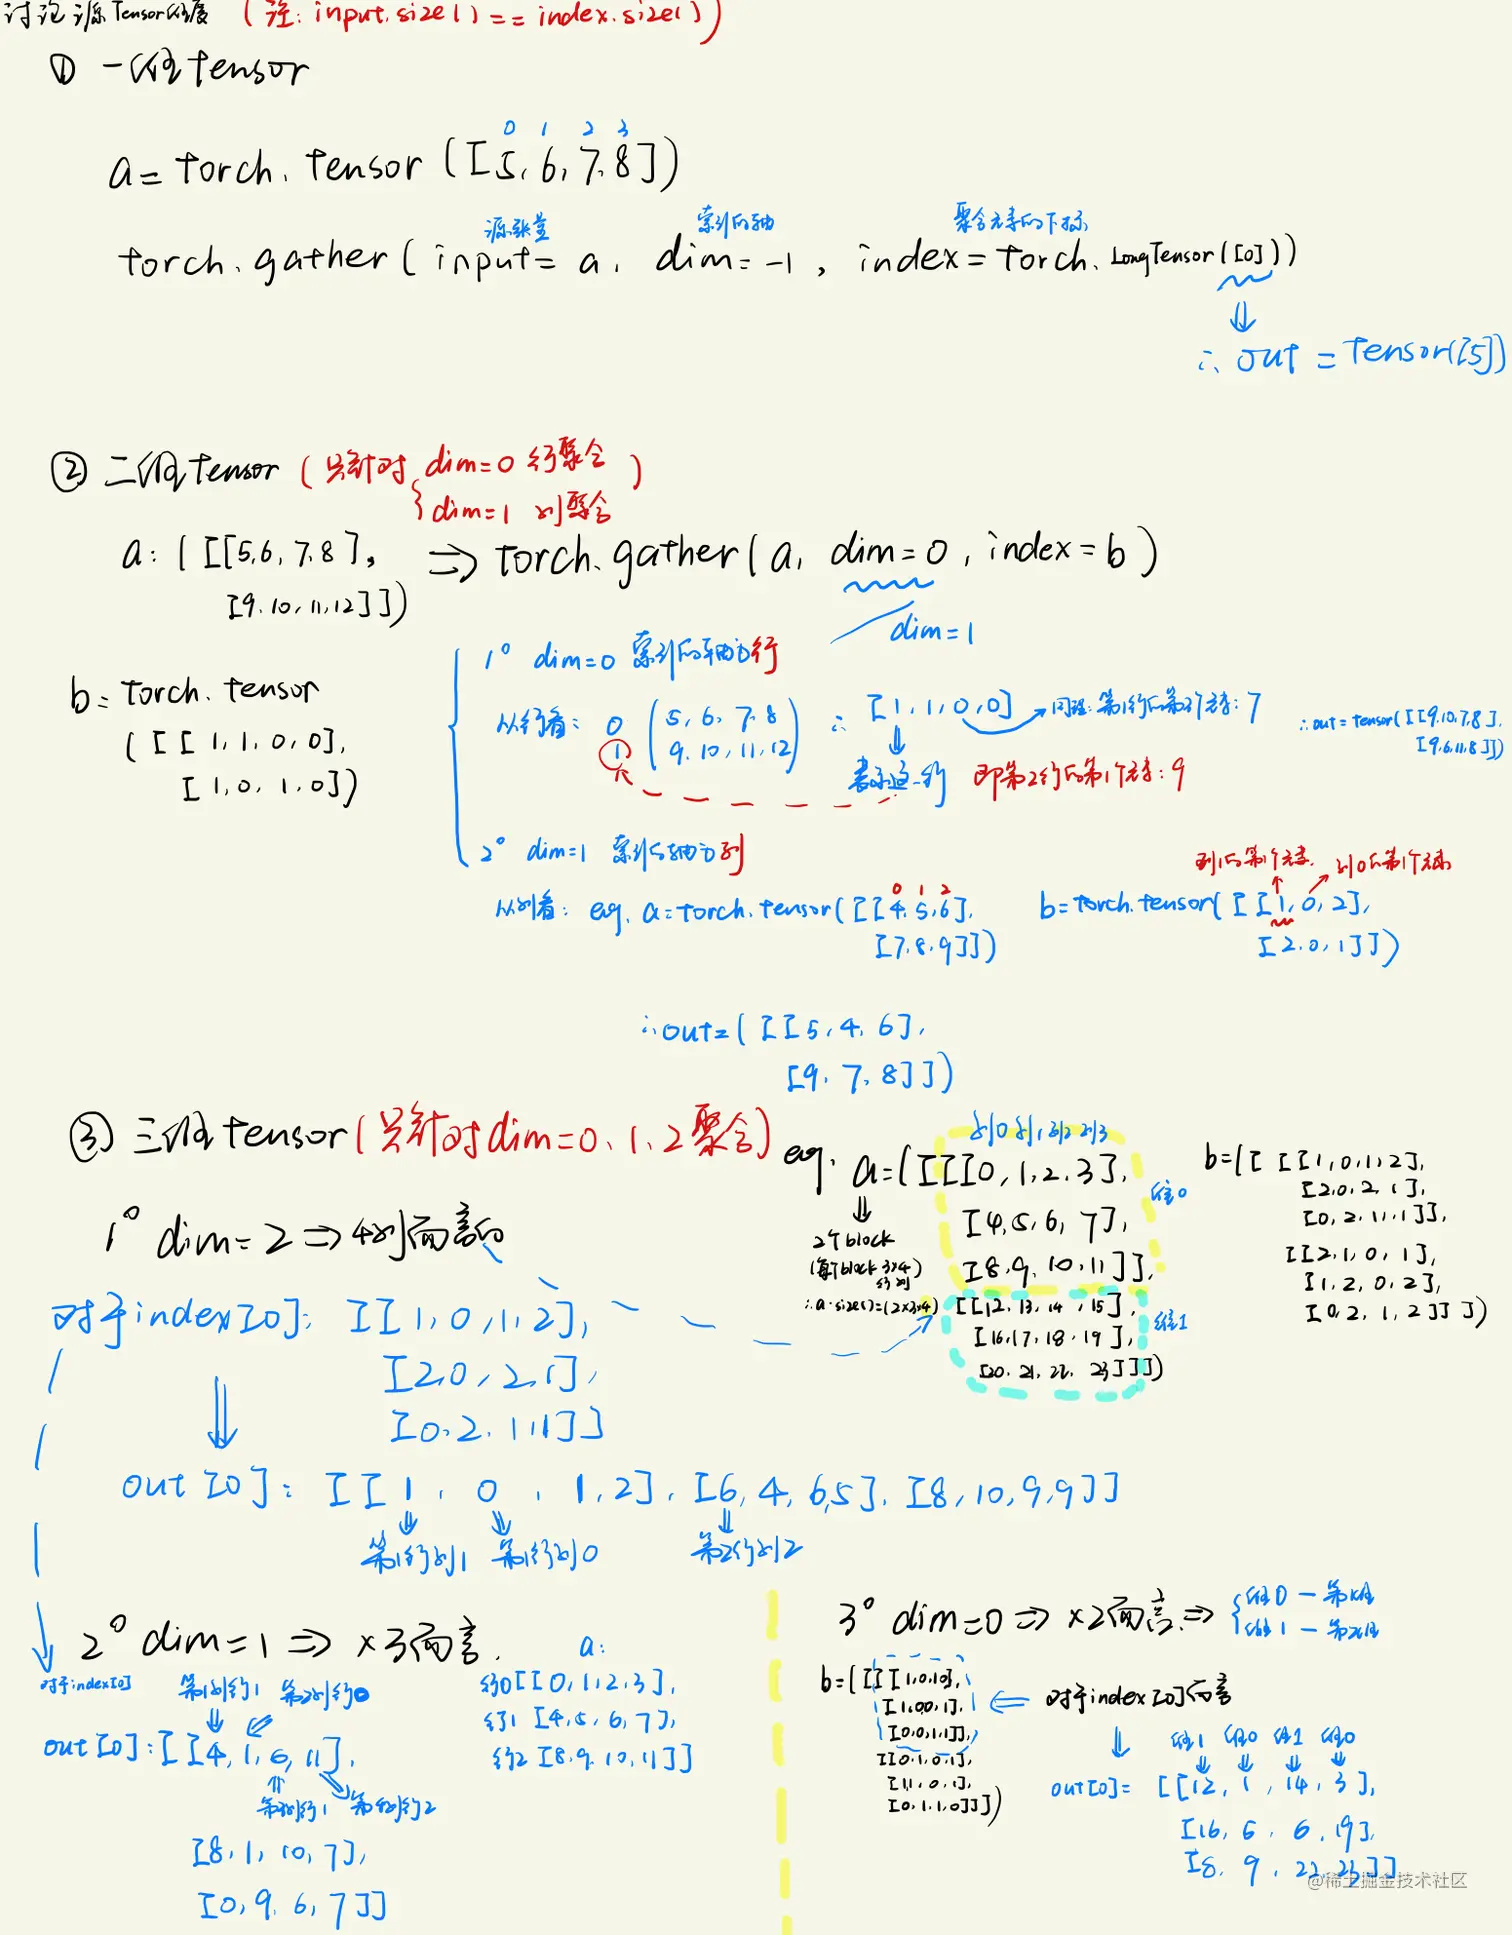 讨论源Tensor维度 (注: input.size() == index.size())
① 一维tensor
0 1 2 3
a = torch.tensor([5,6,7,8])
源张量 索引的轴 聚合元素的下标
torch.gather(input=a, dim=-1, index=torch.LongTensor([0]))
∴ out = Tensor([5])
② 二维tensor (只针对 { dim=0 行聚合
dim=1 列聚合 )
a: ([[5,6,7,8],
[9,10,11,12]])
⇒ torch.gather(a, dim=0, index=b)
dim=1
b = torch.tensor
([[1,1,0,0],
[1,0,1,0])
1° dim=0 索引的轴为行
从行看: 0 (5,6,7,8
1 9,10,11,12)
∴ [1,1,0,0] → 同理:第1行的第3个元素:7
表示这一行 即第2行的第1个元素:9
∴out=tensor([[9,10,7,8],
[9,6,11,8]])
2° dim=1 索引的轴为列
列1的第1个元素. 列0的第1个元素
0 1 2
从列看: eg. a=torch.tensor([[4,5,6],
[7,8,9]])
b=torch.tensor([[1,0,2],
[2,0,1]])
∴out=([[5,4,6],
[9,7,8]])
③ 三维tensor(只针对dim=0,1,2聚合)
eg. 列0 列1 列2 列3
a=([[[0,1,2,3],
[4,5,6,7],
[8,9,10,11]],
[[12,13,14,15],
[16,17,18,19],
[20,21,22,23]]])
维0
维1
2个block
(每个block 3×4)
行 列
∴a.size()=(2×3×4)
b=([[[1,0,1,2],
[2,0,2,1],
[0,2,1,1]],
[[2,1,0,1],
[1,2,0,2],
[0,2,1,2]]])
1° dim=2 ⇒ 4列而言的
对于index[0]: [[1,0,1,2],
[2,0,2,1],
[0,2,1,1]]
out[0]: [[1,0,1,2],[6,4,6,5],[8,10,9,9]]
第1行列1 第1行列0 第2行列2
2° dim=1 ⇒ ×3而言.
对于index[0] 第1列行1 第2列行0
out[0]: [[4,1,6,11],
第3列行1 第4列行2
[8,1,10,7],
[0,9,6,7]]
a:
行0 [[0,1,2,3],
行1 [4,5,6,7],
行2 [8,9,10,11]]
3° dim=0 ⇒ ×2而言 ⇒ { 维0 — 第1维
维1 — 第2维
b=([[[1,0,1,0],
[1,0,0,1],
[0,0,1,1]],
[[0,1,0,1],
[1,1,0,1],
[0,1,1,0]]])
⇐ 对于index[0]而言
维1 维0 维1 维0
out[0]= [[12,1,14,3],
[16,5,6,19],
[8,9,22,23]]
@稀土掘金技术社区